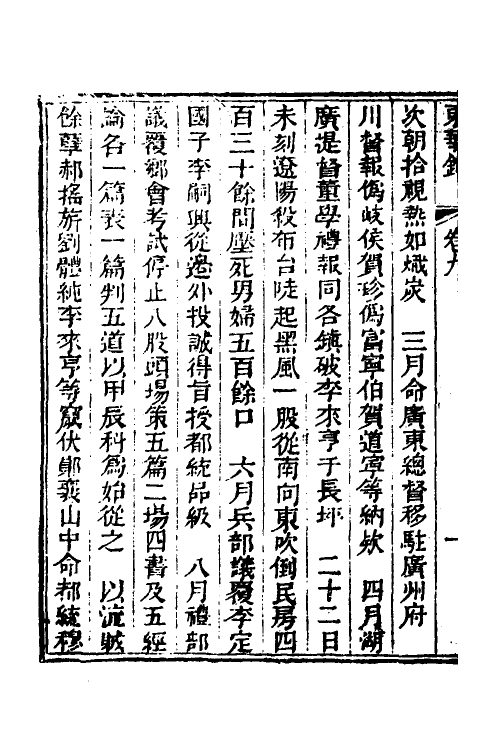 東華錄 卷九 一
次朝拾視熱如熾炭　三月命廣東總督移駐廣州府
川督報僞岐侯賀珍僞富寧伯賀道寧等納欵　四月湖
廣提督董學禮報同各鎮破李來亨于長坪　二十二日
未刻遼陽教布台陡起黑風一股從南向東吹倒民房四
百三十餘間壓死男婦五百餘口　六月兵部議覆李定
國子李嗣興從邊外投誠得旨授都統品級　八月禮部
議覆鄉會考試停止八股頭場策五篇二場四書及五經
論各一篇表一篇判五道以甲辰科爲始從之　以流賊
餘孽郝搖旂劉體純李來亨等竄伏鄖襄山中命都統穆